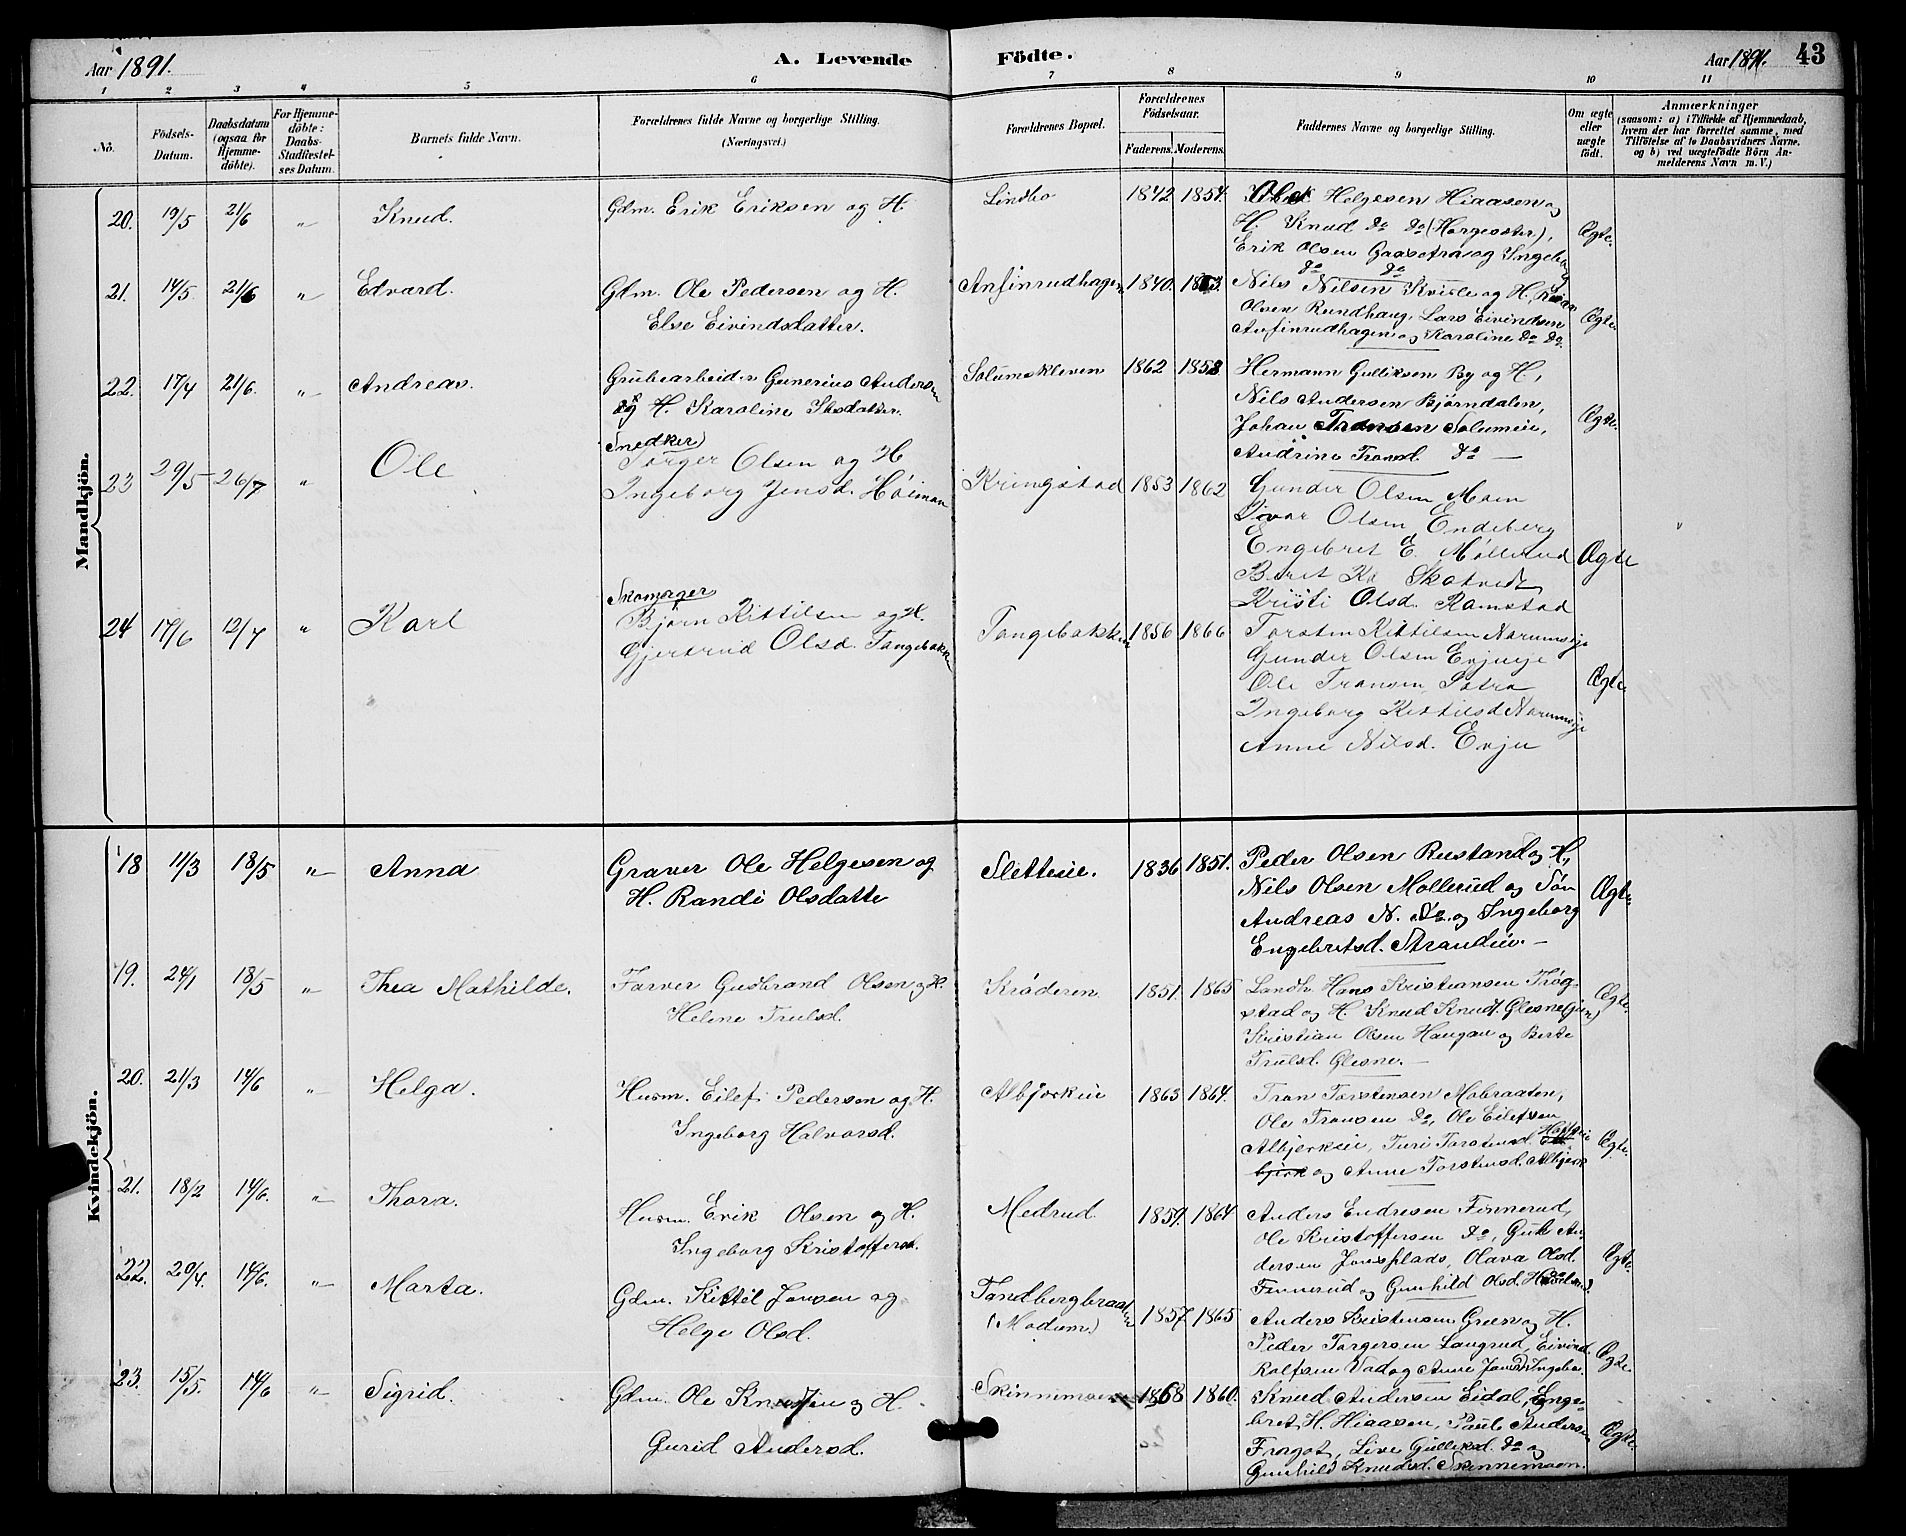 Aar 1891.
A. Levende
Födte.
Aar 1891.
43
1 2 3 4 5 6 7 8 9 10 11
No.
Födsels-Datum.
Daabsdatum (ogsaa for Hjemme-döbte).
For Hjemme-döbte: Daabs-Stadfæstel-ses Datum.
Barnets fulde Navn.
Forældrenes fulde Navne og borgerlige Stilling.
(Næringsvei.)
Forældrenes Bopæl.
Forældrenes Födselsaar.
Faderens. Moderens.
Faddernes Navne og borgerlige Stilling.
Om ægte eller uægte födt.
Anmærkninger
(saasom: a) i Tilfælde af Hjemmedaab, hvem der har forrettet samme, med Tilföielse af to Daabsvidners Navne. og b) ved uægtefödte Börn Anmelderens Navn m. V.)
Mandkjön.
20. 19/5 21/6 " Knud. Gdm. Erik Eriksen og H. Lindbo 1842 1854. Helgesen Hiaasen og
H. Knud do do (Horgesæter),
Erik Olsen Gaasetra og Ingeborg
do do
Ægte.
21. 14/5 21/6 " Edvard. Gdm. Ole Pedersen og H.
Else Eivindsdatter.
Anfinrudhagen 1840. Nils Nilsen Kvisle og H.
Olsen Rundhaug, Lars Eivindsen
Anfinrudhagen og Karoline do do.
Ægte
22. 17/4 21/6. " Andreas. Grubearbeider Gunerius Andersen
og H. Karoline
Solumskleven 1862 1858 Hermann Gulliksen By og H,
Nils Andersen Björndalen,
Johan Transen Solumeie,
Andrine Transd. do —
Ægte.
23 29/5 26/7 " Ole Snedker
Torger Olsen og H
Ingeborg Jensd. Höimon
Kringstad 1853 1862 Gunder Olsen Moen
Ivar Olsen Endeberg
Engebret E. Möllerud
Beret K. Skotvedt
Kristi Olsd. Ramstad
Ægte
24 17/6 12/7 " Karl Skomager
Björn Kittilsen og H.
Gjertrud Olsd. Tangebakken
Tangebakken 1856 1866 Torsten Kittilsen Narumeie
Gunder Olsen Enjueje
Ole Transen Sætra
Ingeborg Kittilsd Narumeje
Anne Nilsd. Evju
Ægte
Kvindekjön.
18 11/3 18/5 " Anna Graver Ole Helgesen og
H. Randi Olsdatte
Sletteeie. 1836 1851. Peder Olsen Rustand og H,
Nils Olsen Möllerud og Sön
Andreas N. do. og Ingeborg
Engebretsd. Strandeie. —
Ægte
19. 24/1 18/5 " Thea Mathilde. Farver Gudbrand Olsen og H.
Helene Trulsd.
Kröderen 1851. 1865 Landh. Hans Kristiansen Trög-
stad og H. Knud Knuds. Glesne (jun)
Kristian Olsen Haugan og Berte
Trulsd. Glesne. —
Ægte.
20. 21/3 14/6 " Helga. Husm. Eilef Pedersen og H.
Ingeborg Halvorsd.
Albjerkeie 1863 1864. Tran Torstensen Mobraaten,
Ole Transen do, Ole Eilefsen
Albjerkeie, Turi Torstensd.
bjerk og Anne Torstensd. Albjerk
Ægte.
21. 18/2 14/6. " Thora. Husm. Erik Olsen og H.
Ingeborg Kristoffersd.
Medrud 1859. 1864 Anders Endresen Finnerud,
Ole Kristoffersen do, Gute An-
dersen Jonsplads, Olava Olsd.
Finnerud og Gunhild Olsd.
Ægte.
22. 20/4. 14/6. " Marta. Gdm. Kittil Jansen og
Helge Olsd.
Tandbergbraaten
(Modum.)
1857. 1865 Anders Kristensen Green og H.
Peder Torgersen Langrud, Eivind
Rolfsen Vad og Anne
Ægte.
23. 15/5. 14/6 " Sigrid. Gdm. Ole Knudsen og H.
Gurid Andersd.
Skinnemoen 1868 1860. Knud Andersen Eidal, Enge-
bret H. Hiaasen, Paul Andersen
Frøgot, Live Gulliksd. do og
Gunhild Knudsd. Skinnemoen.
Ægte